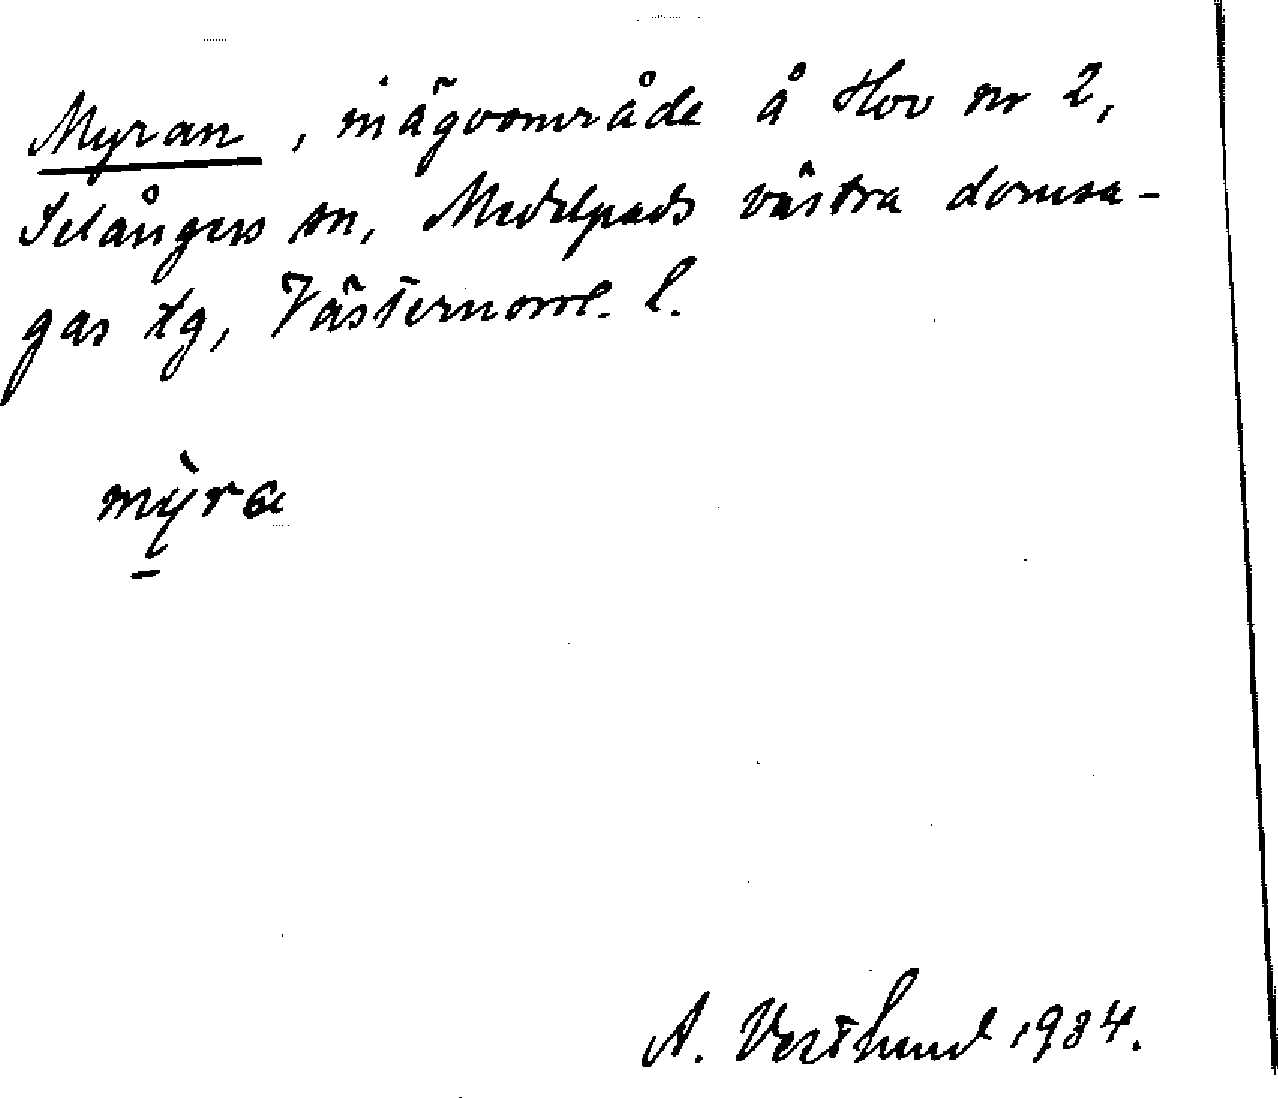 Myran, inägoområde å Hov nr 2,
Selångers sn, Medelpads västra domsa-
gas tg, Västernorrl. l.
mỳra
A. Vestlund 1934.